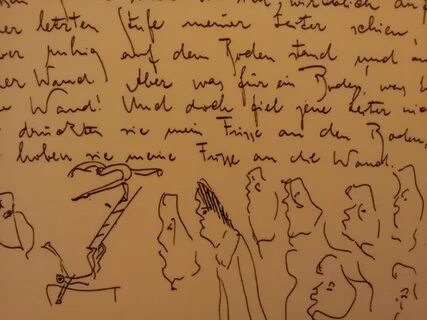 wirklich auf
er letzten Stufe meiner Leiter schien,
er ruhig auf dem Boden stand und a
er Wand Aber was für ein Boden, was
e Wand! Und doch fiel jene Leiter nic
drückten sie mein Füsse an den Boden,
hoben sie meine Füsse an die Wand.